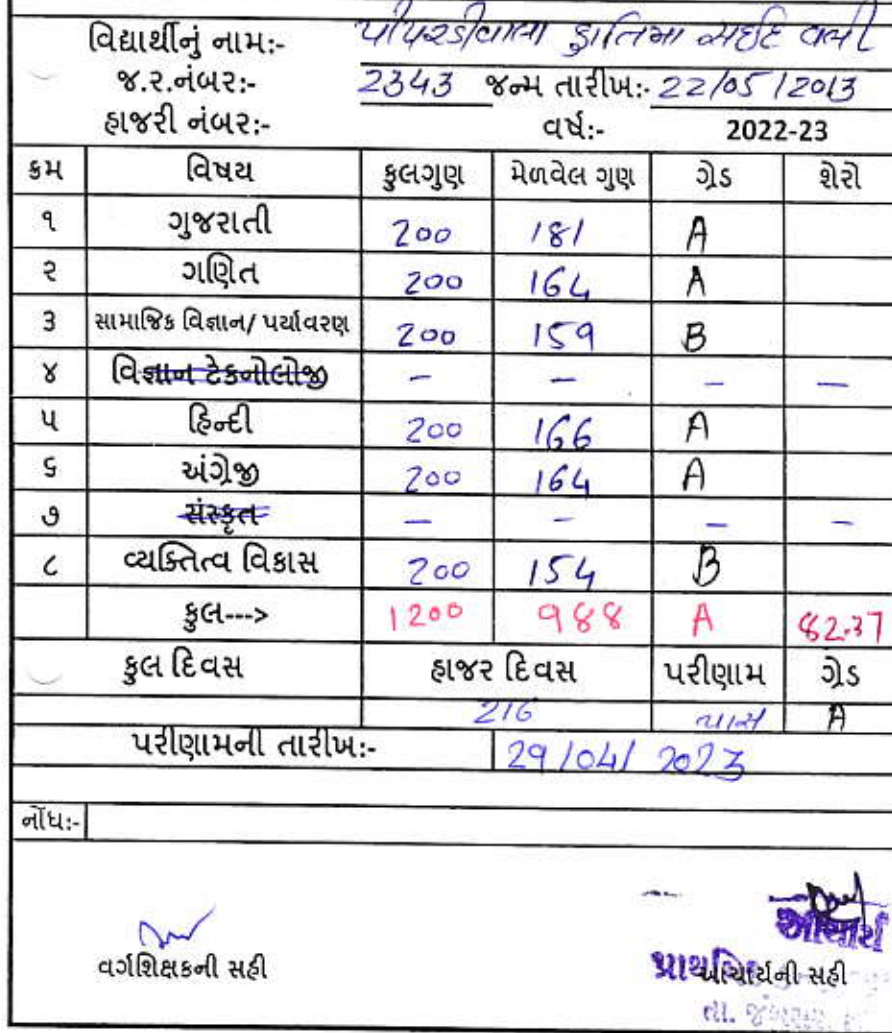 વિદ્યાર્થીનું નામ:- પીપરડીવાલા ફાતિમા સઈદ વલી
જ.ર.નંબર:- 2343 જન્મ તારીખ:- 22/05/2013
હાજરી નંબર:- વર્ષ:- 2022-23
ક્રમ વિષય કુલગુણ મેળવેલ ગુણ ગ્રેડ શેરો
૧ ગુજરાતી 200 181 A
૨ ગણિત 200 164 A
૩ સામાજિક વિજ્ઞાન/ પર્યાવરણ 200 159 B
૪ વિજ્ઞાન ટેકનોલોજી - - - -
૫ હિન્દી 200 166 A
૬ અંગ્રેજી 200 164 A
૭ સંસ્કૃત - - - -
૮ વ્યક્તિત્વ વિકાસ 200 154 B
કુલ---> 1200 988 A 82.37
કુલ દિવસ હાજર દિવસ પરીણામ ગ્રેડ
216 પાસ A
પરીણામની તારીખ:- 29/04/2023
નોંધ:-
આચાર્ય
વર્ગશિક્ષકની સહી આચાર્યની સહી